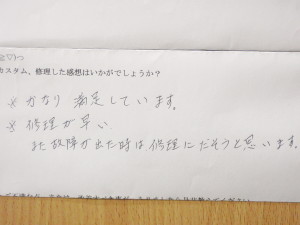 カスタム、修理した感想はいかがでしょうか？
※ かなり 満足しています。
※ 修理が早い
また故障が出た時は修理にだそうと思います。